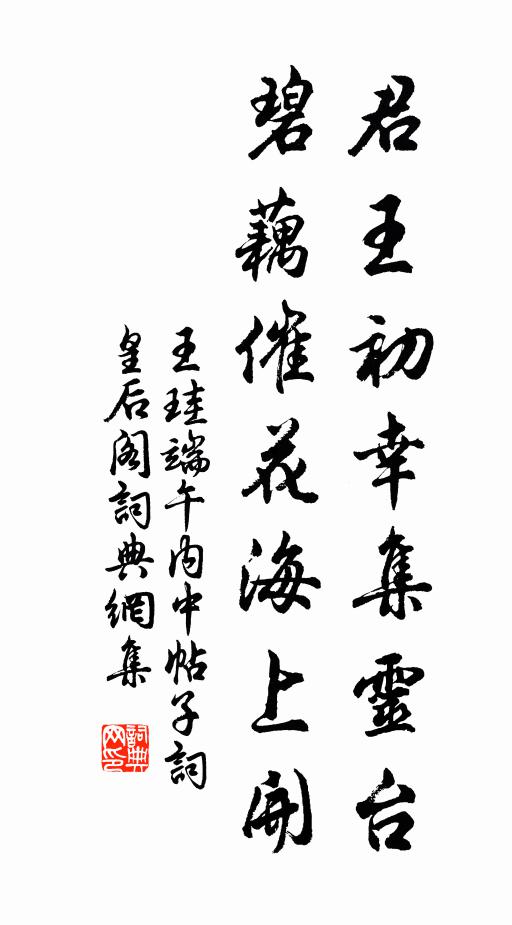 君王初幸集靈台
碧藕催花海上開
王珪端午內中帖子詞
皇后阁詞典網集
詞典
网印